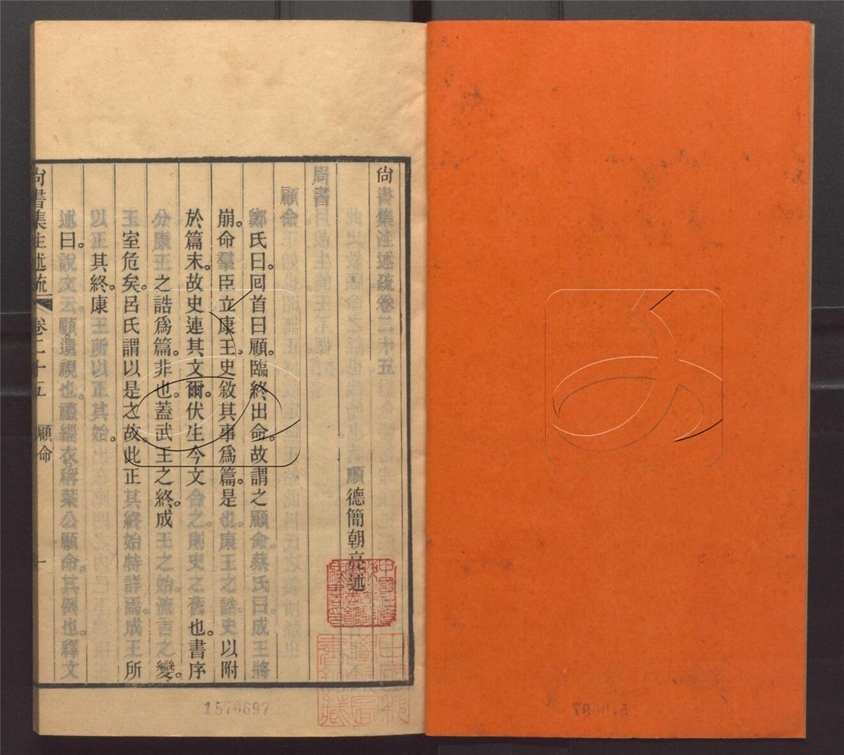 尚書集注述疏卷二十五
順德簡朝亮述
周書
顧命
鄭氏曰。回首曰顧。臨終出命。故謂之顧命。蔡氏曰。成王將
崩。命羣臣立康王。史敘其事爲篇。是也。康王之誥。史以附
於篇末。故史連其文爾。伏生今文合之。則史之舊也。書序
分康王之誥爲篇。非也。蓋武王之終。成王之始。流言之變。
王室危矣。呂氏謂以是之故。此正其終始特詳焉。成王所
以正其終。康王所以正其始。
述曰。說文云。顧。還視也。禮緇衣稱葉公顧命。其例也。釋文
尚書集注述疏 卷二十五 顧命 一
1570697